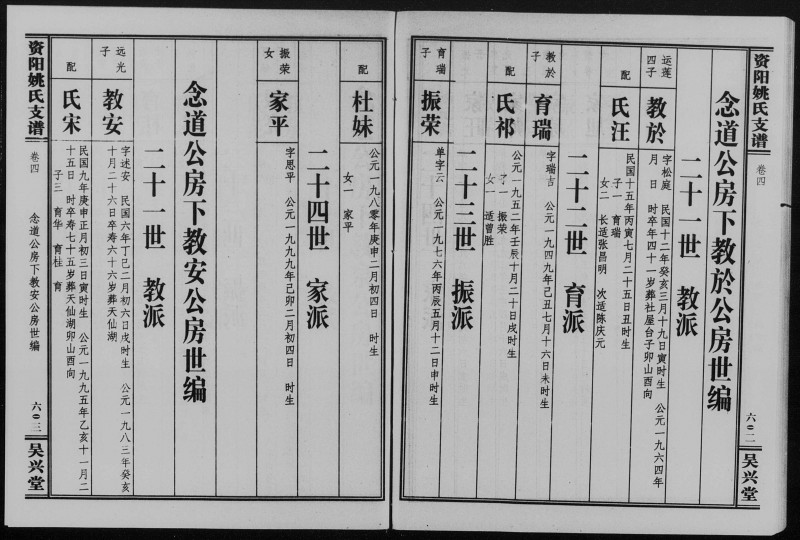 资阳姚氏支谱
卷四
六〇二
吴兴堂
念道公房下教於公房世编
二十一世 教派
运莲四子
教於
字松庭 民国十二年癸亥三月十九日寅时生 公元一九六四年
月 日 时卒年四十一岁葬社屋台子卯山酉向
配
氏汪
民国十五年丙寅七月二十五日丑时生
子一 育瑞
女二 长适张昌明 次适陈庆元
二十二世 育派
教於子
育瑞
字瑞吉 公元一九四九年己丑七月十六日未时生
配
氏祁
公元一九五二年壬辰十月二十日戌时生
子一 振荣
女一 适曾胜
二十三世 振派
育瑞子
振荣
单字云 公元一九七六年丙辰五月十二日申时生
配
杜妹
公元一九八零年庚申二月初四日 时生
女一 家平
二十四世 家派
振荣女
家平
字思平 公元一九九九年己卯二月初四日 时生
念道公房下教安公房世编
二十一世 教派
远光子
教安
字述安 民国六年丁巳二月初六日戌时生 公元一九八三年癸亥
十月二十六日卒寿六十六岁葬天仙湖
配
氏宋
民国九年庚申正月初三日寅时生 公元一九九五年乙亥十一月二
十五日 时卒寿七十五岁葬天仙湖卯山酉向
子三 育华 育桂 育
资阳姚氏支谱
卷四
念道公房下教安公房世编
六〇三
吴兴堂